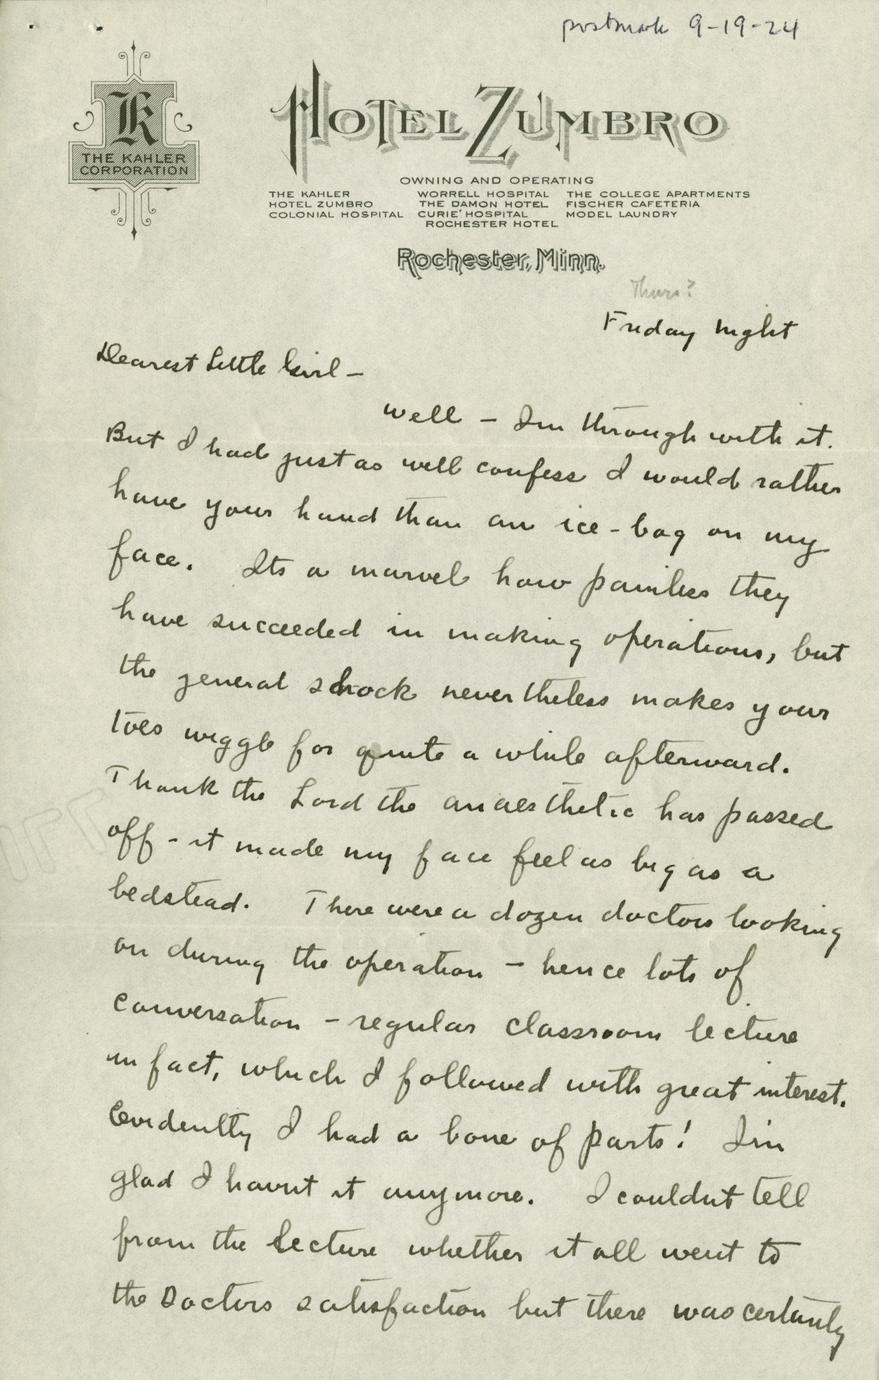 postmark 9-19-24
K
THE KAHLER
CORPORATION
HOTEL ZUMBRO
OWNING AND OPERATING
THE KAHLER WORRELL HOSPITAL THE COLLEGE APARTMENTS
HOTEL ZUMBRO THE DAMON HOTEL FISCHER CAFETERIA
COLONIAL HOSPITAL CURIE' HOSPITAL MODEL LAUNDRY
ROCHESTER HOTEL
Rochester, Minn.
Thurs?
Friday night
Dearest Little Girl —
Well — I'm through with it.
But I had just as well confess I would rather
have your hand than an ice-bag on my
face. Its a marvel how painless they
have succeeded in making operations, but
the general shock nevertheless makes your
toes wiggle for quite a while afterward.
Thank the Lord the anaesthetic has passed
off - it made my face feel as big as a
bedstead. There were a dozen doctors looking
on during the operation — hence lots of
conversation — regular classroom lecture
in fact, which I followed with great interest.
Evidently I had a bone of parts! I'm
glad I havnt it anymore. I couldnt tell
from the lecture whether it all went to
the Doctors satisfaction but there was certainly